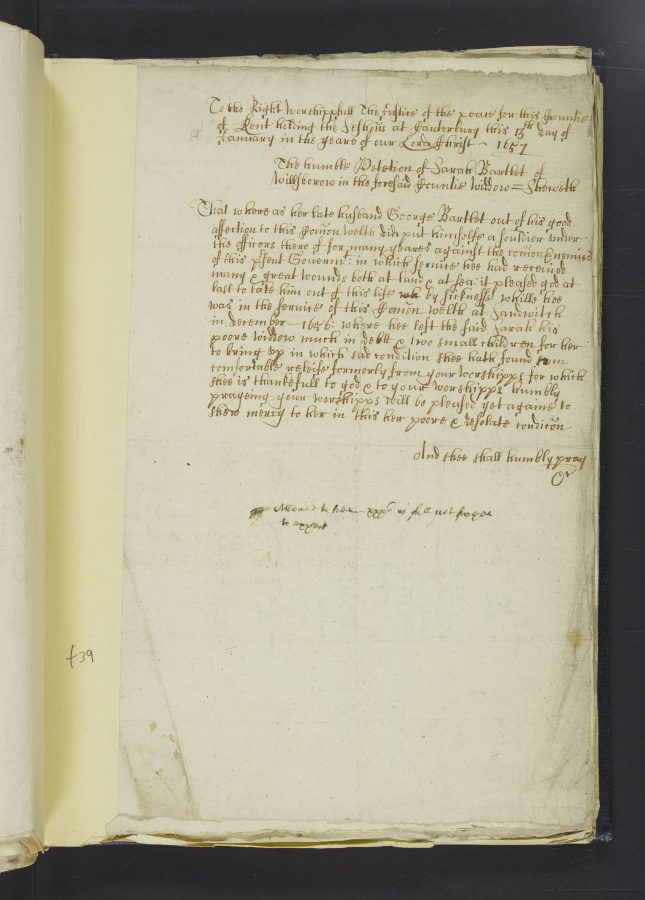 To the Right worshippfull The Justice of the peace for this Countie
of Kent holding the Sessions at Canterbury this 13th day of
January in the yeare of our Lord Christ ~ 1657
The humble Petetion of Sarah Bartlet of
Willsborow in the foresaid Countie widdow = Sheweth
That where as her late husband George Bartlet out of his good
affection to this Comon welth did put himselfe a souldier under
the officers there of for many yeares against the comon Enemies
of this psent Governmt: in which servise hee had received
many & great wounds both at land & at sea: it pleased god at
last to take him out of this life by sicknesse whills hee
was in the servise of this Comon welth at Sandwitch
in december 1656: where hee left the said Sarah his
poore widdow much in debt & two small children for her
to bring up in which sad condition shee hath found som
comfortable releife formerly from your worshipps for which
shee is thankefull to god & to your worshipps humbly
prayeing your worshipps will be pleased yet againe to
shew mercy to her in this her poore & desolate condicon
And shee shall humbly pray
&c
to her xxxs in full not
to expect
f39